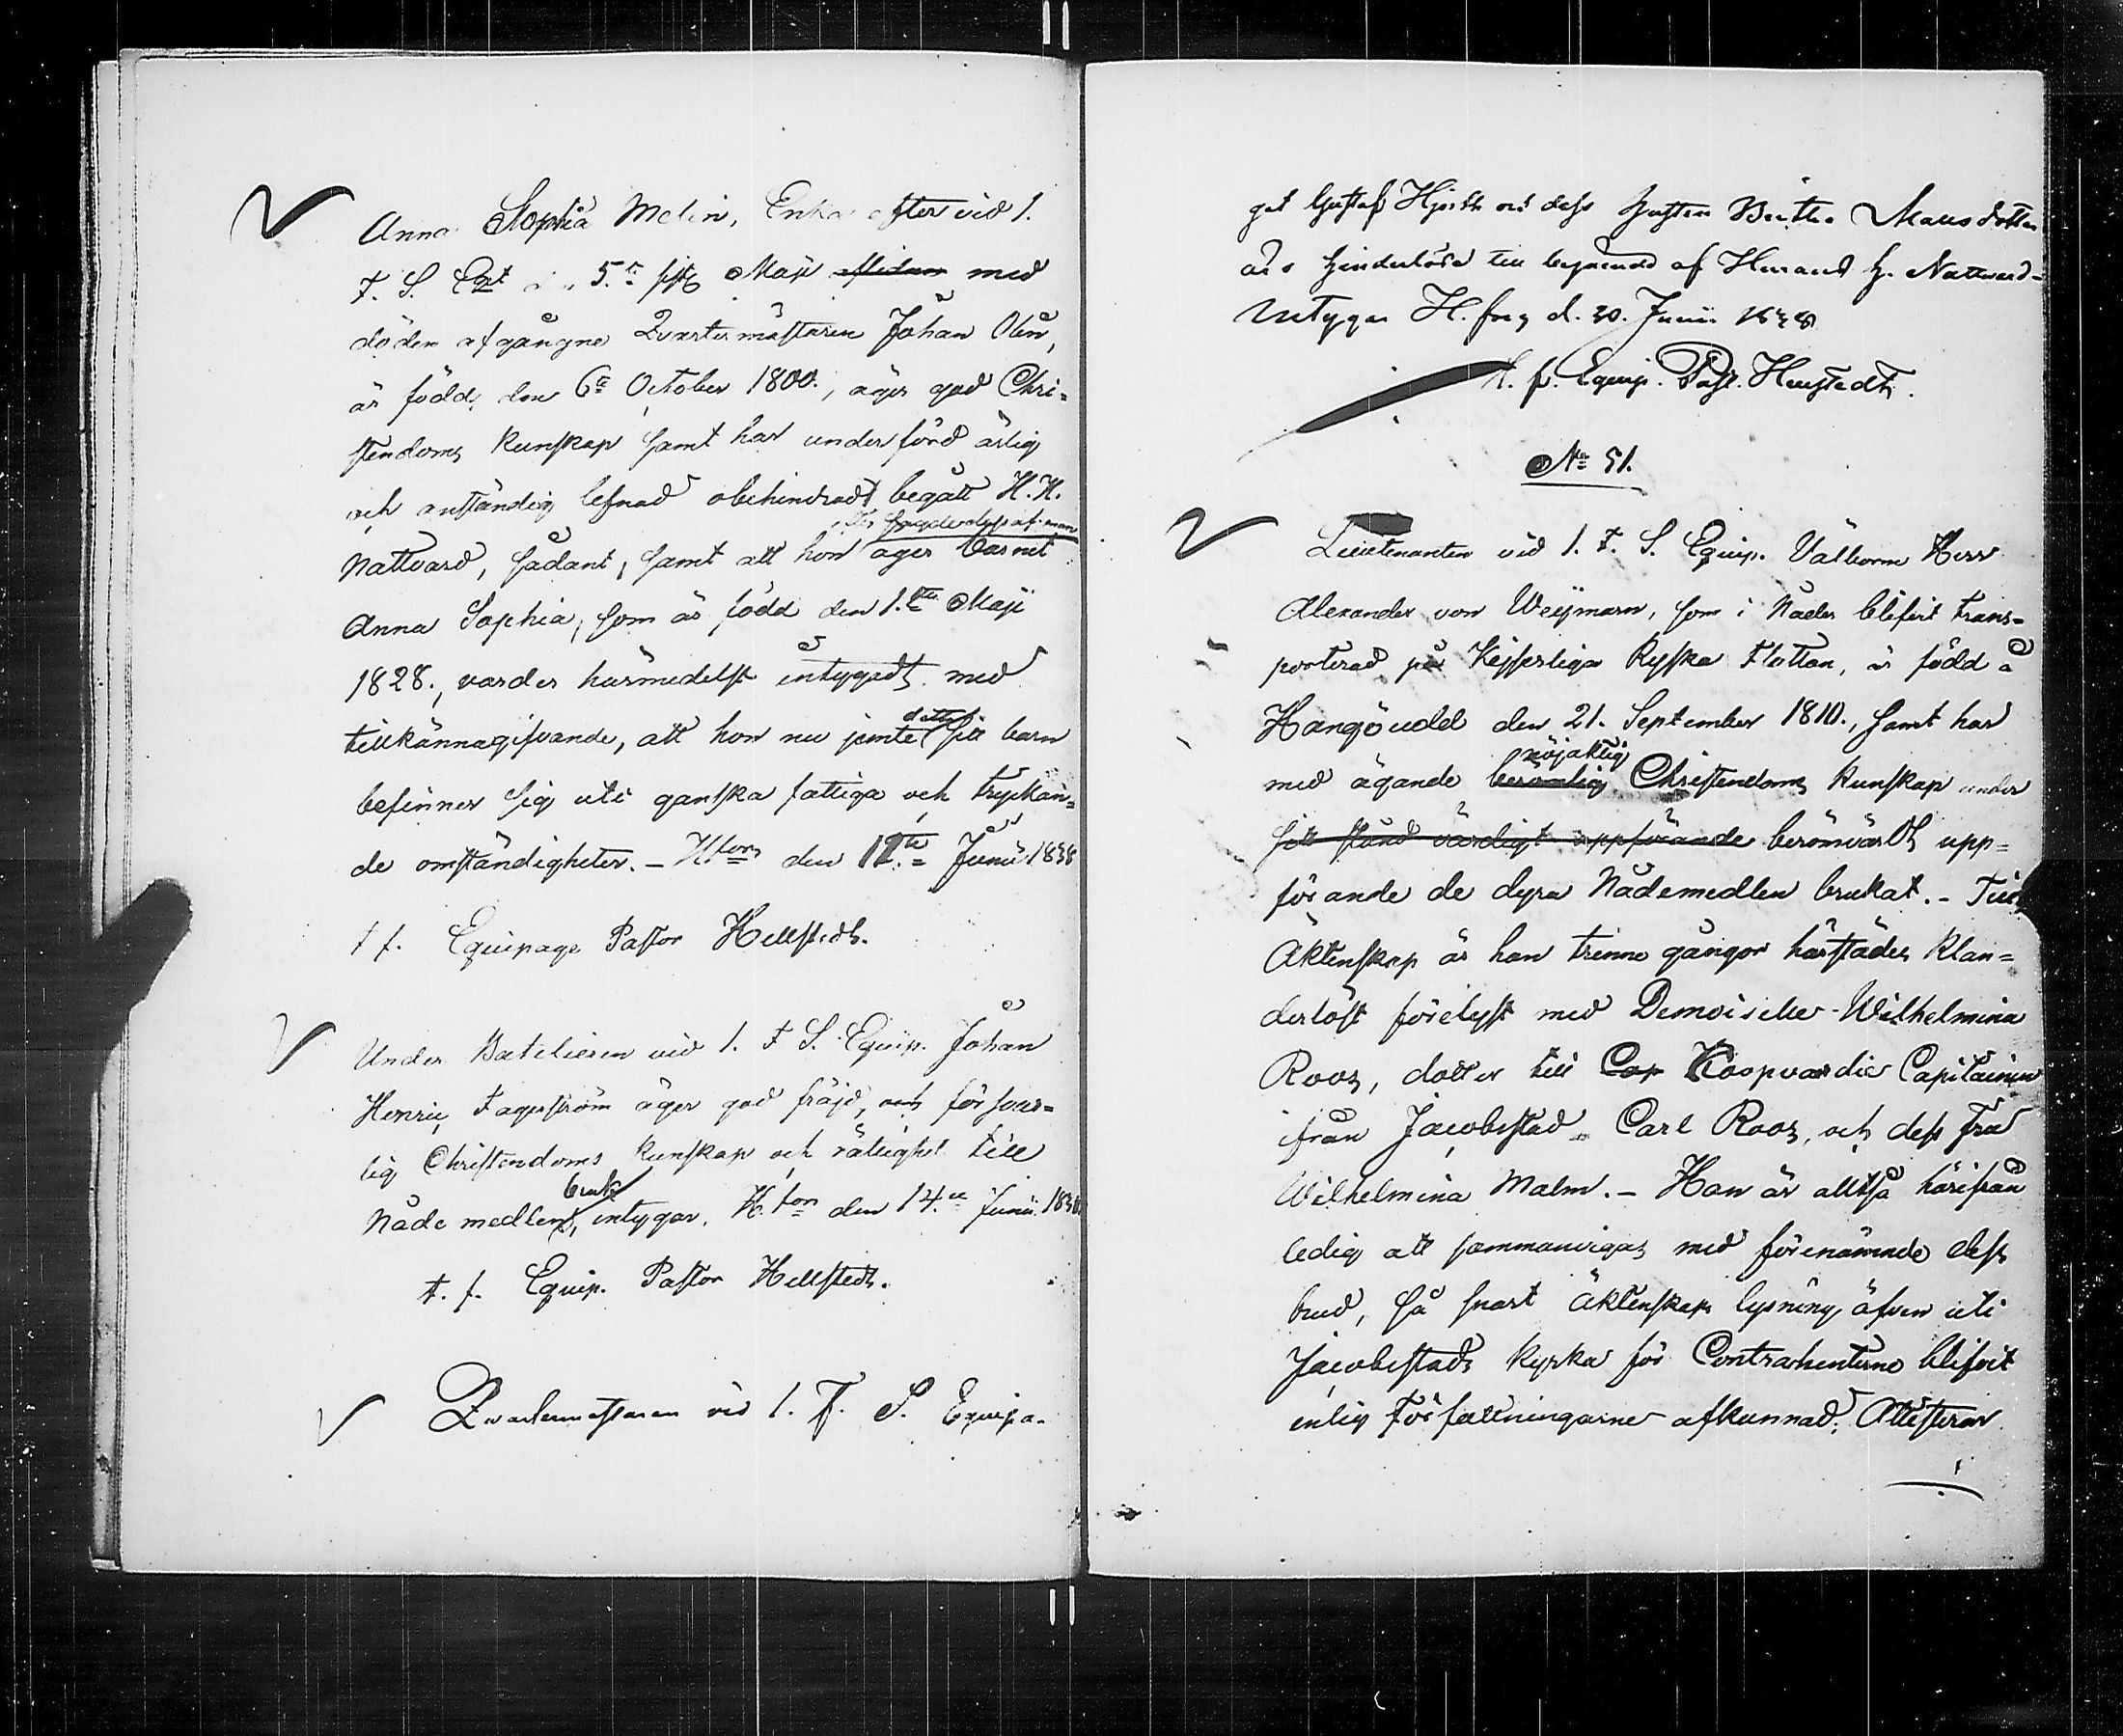 Anna Sophia Melin, Enka efter vid 1.
F. S. Eqt den 5.te Maji afliden med
döden afgångne Qvartermästaren Johan Olin,
är född den 6te October 1800., äger god Chri=
stendoms kunskap samt har under förd ärlig
och anständig lefnad obehindradt begått H. H.
Nattvard, sådant, samt att hon äger barnet
Anna Sophia, som är född den 1.sta Maji
1828., varder härmedelst intygadt med
tillkännagifvande, att hon nu jemte detta sitt barn
befinner sig uti ganska fattiga och tryckan=
de omständigheter. – Hfors den 12.te Junii 1838
t f. Equipage Pastor Hellstedt.
Under Batelieren vid 1. F S. Equip. Johan
Henric Fagerström äger god fräjd, och försvar=
lig Christendoms kunskap och rättighet till
Nåde medlens bruk, intygar. H.fors den 14.de Junii 1838.
t. f. Equip. Pastor Hellstedt.
Qvartermästaren vid 1. F. S. Equipa-
get Gustaf Hjorth och dess hustru Beitha Mausdotter
äro hinderlöse till begående af Herrans H. Nattvard=
intygar H.fors d. 30. Junii 1838
t. f. Equip. Past. Hellstedt.
No 51.
Lieutenanten vid 1. F. S. Equip. Välborne Herr
Alexander von Weymarn, som i Nåder blifvit trans=
porterad på Kejserliga Ryska Flottan, är född å
Hangöudd den 21. September 1810., samt har
med ägande berömlig nöjaktig Christendoms kunskap under
sitt stånd värdigt uppförande berömvärdt upp=
förande de dyra Nådemedlen brukat. – Till
Äktenskap är han trenne gångor härstädes klan=
derlöst förelyst med Demoiselle Wilhelmina
Roos, dotter till Cap Koopvardie Capitainen
ifrån Jacobstad Carl Roos, och dess Fru
Wilhelmina Malm. – Han är alltså härifrån
ledig att sammanvigas med förenämnde dess
brud, så snart Äktenskaps lysning äfven uti
Jacobstads kyrka för Contrahenterne blifvit
enlig Författningarne afkunnad; Attesterar